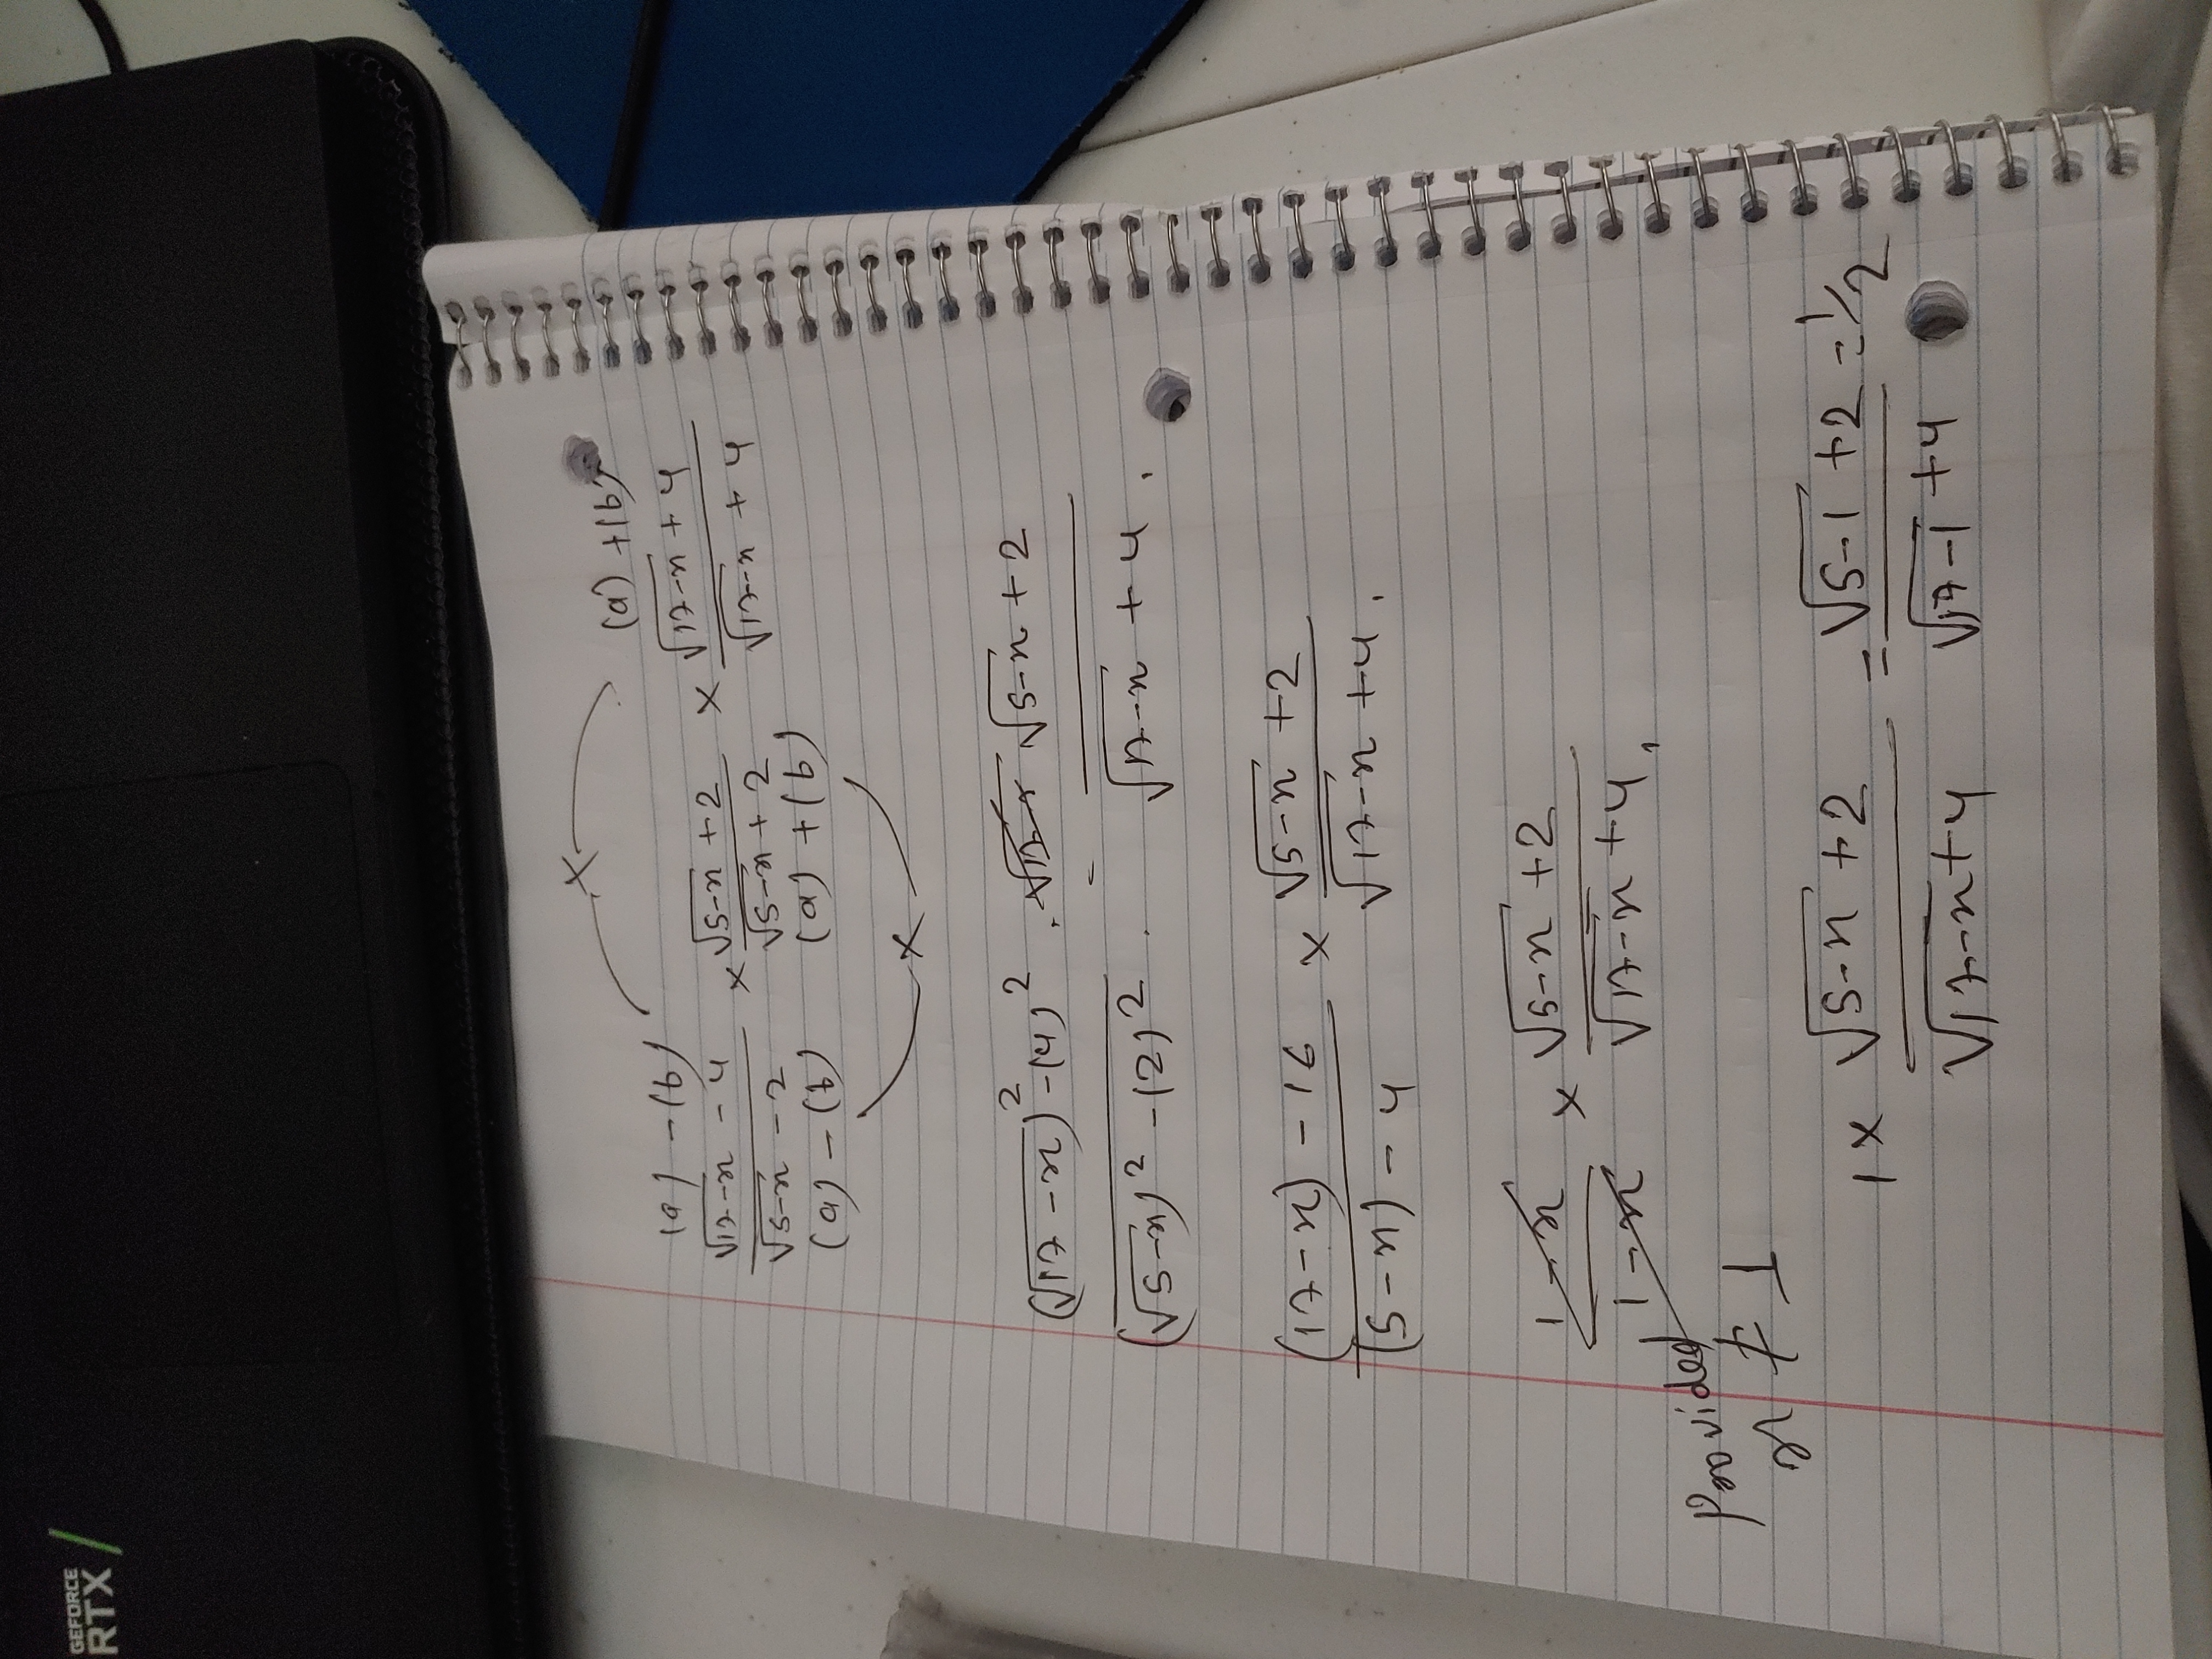 GEFORCE
RTX
×
(a) - (b)
(a) + (b)
(√(17-x) - 4)/(√(5-x) - 2) × (√(5-x) + 2)/(√(5-x) + 2) × (√(17-x) + 4)/(√(17-x) + 4)
(a) - (b) (a) + (b)
×
((√(17-x))² - (4)²)/((√(5-x))² - (2)²) · (√(5-x) + 2)/(√(17-x) + 4)
((17-x) - 16)/((5-x) - 4) × (√(5-x) + 2)/(√(17-x) + 4)
(1-x)/(1-x) × (√(5-x) + 2)/(√(17-x) + 4)
Provided
x ≠ 1
1 × (√(5-x) + 2)/(√(17-x) + 4) = (√(5-1) + 2)/(√(17-1) + 4) = 1/2